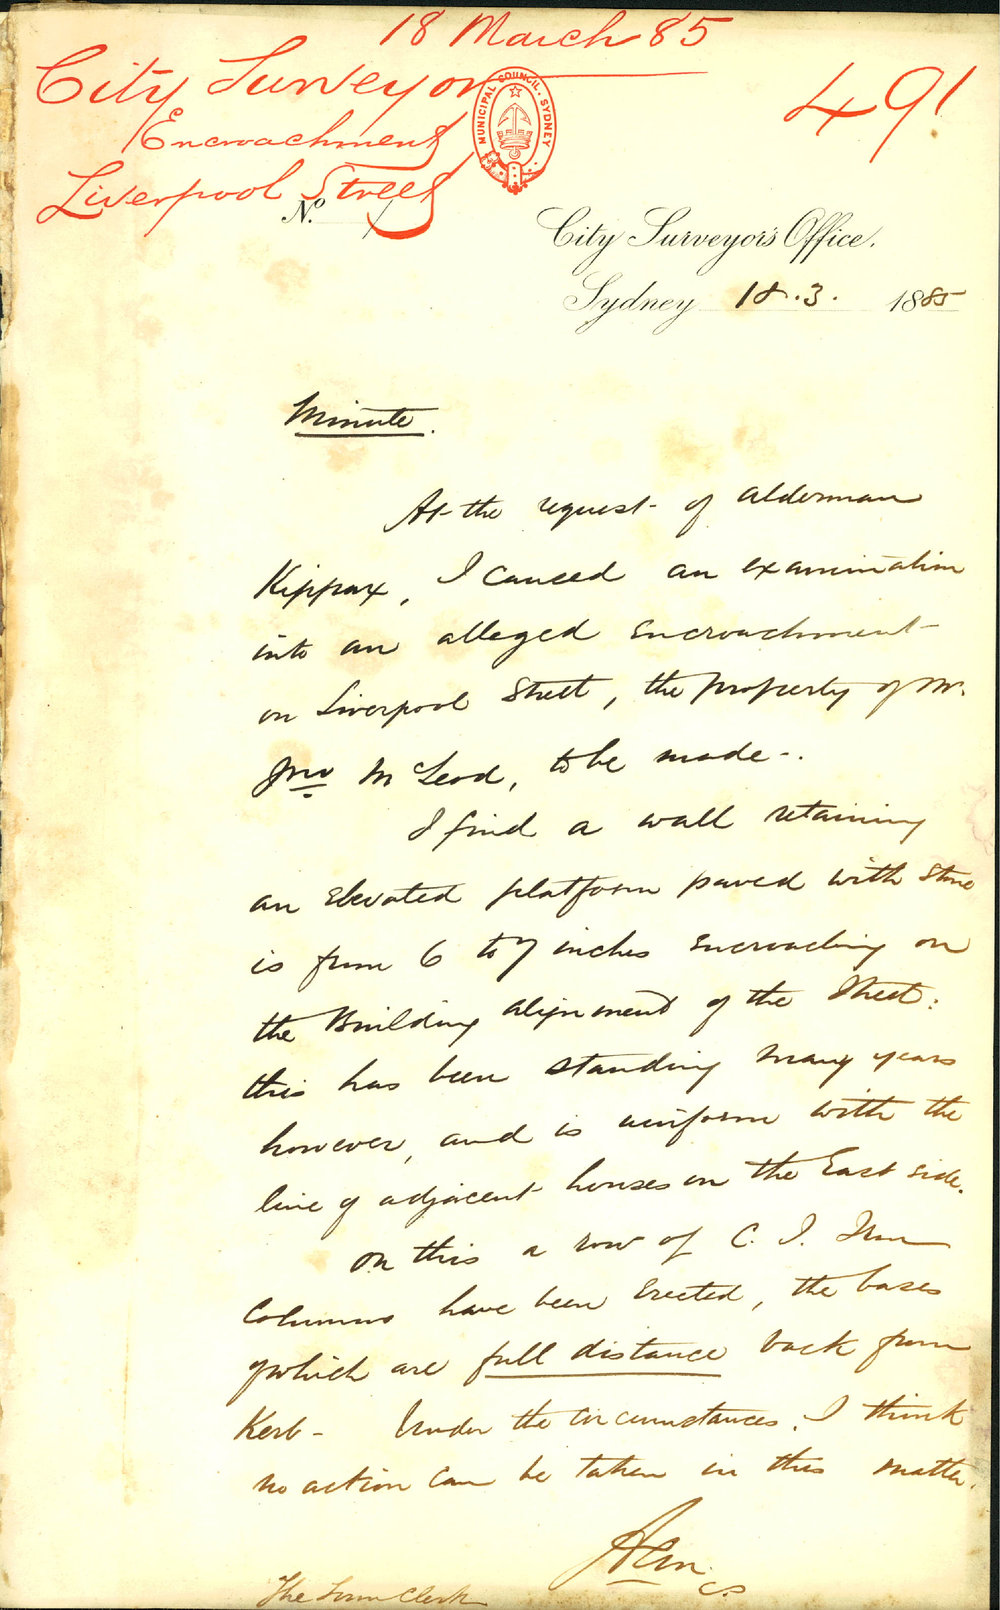 18 March 85
City Surveyor
491
Encroachment
Liverpool Street
MUNICIPAL COUNCIL. SYDNEY
No.
City Surveyor's Office.
Sydney 18.3. 1885
Minute.
At the request of Alderman
Kippax, I caused an examination
into an alleged encroachment
on Liverpool Street, the property of Mr.
Jno McLeod, to be made.
I find a wall retaining
an elevated platform paved with stone
is from 6 to 7 inches encroaching on
the Building alignment of the Street:
this has been standing many years
however, and is uniform with the
line of adjacent houses on the East side.
On this a row of C. I. Iron
Columns have been erected, the bases
of which are full distance back from
Kerb - Under the circumstances, I think
no action can be taken in this matter.
CS
The Town Clerk